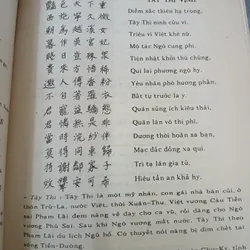 豔色天下重
西施寧久微
朝爲越溪女
暮作吳宮妃
賤日豈殊衆
貴來方悟稀
邀人傅香粉
不自著羅衣
君寵益嬌態
君憐無是非
當時浣紗伴
莫得同車歸
持謝鄰家子
效顰安可希
TÂY THI VỊNH
Diễm sắc thiên hạ trọng,
Tây Thi ninh cửu vi.
Triêu vi Việt khê nữ,
Mộ tác Ngô cung phi.
Tiện nhật khởi thù chúng,
Quí lai phương ngộ hy.
Yêu nhân phó hương phấn,
Bất tự trước la y.
Quân sủng ích kiều thái,
Quân lân vô thị phi.
Đương thời hoán sa bạn,
Mạc đắc đồng xa qui.
Trì tạ lân gia tử,
Hiệu tần an khả hy.
- Tây Thi: Tây Thi là một mỹ nhân, con gái nhà bán củi, ở
thôn Trữ-La, nước Việt, thời Xuân-Thu. Việt vương Câu Tiễn
sai Phạm Lãi đem nàng về dạy cho ca vũ, rồi dâng cho Ngô
vương Phù Sai. Sau khi Ngô vương mất nước, Tây Thi theo
Phạm Lãi du lịch Ngũ hồ. Có thuyết nói nàng bị dìm chết tại
sông Tiền-Đường.